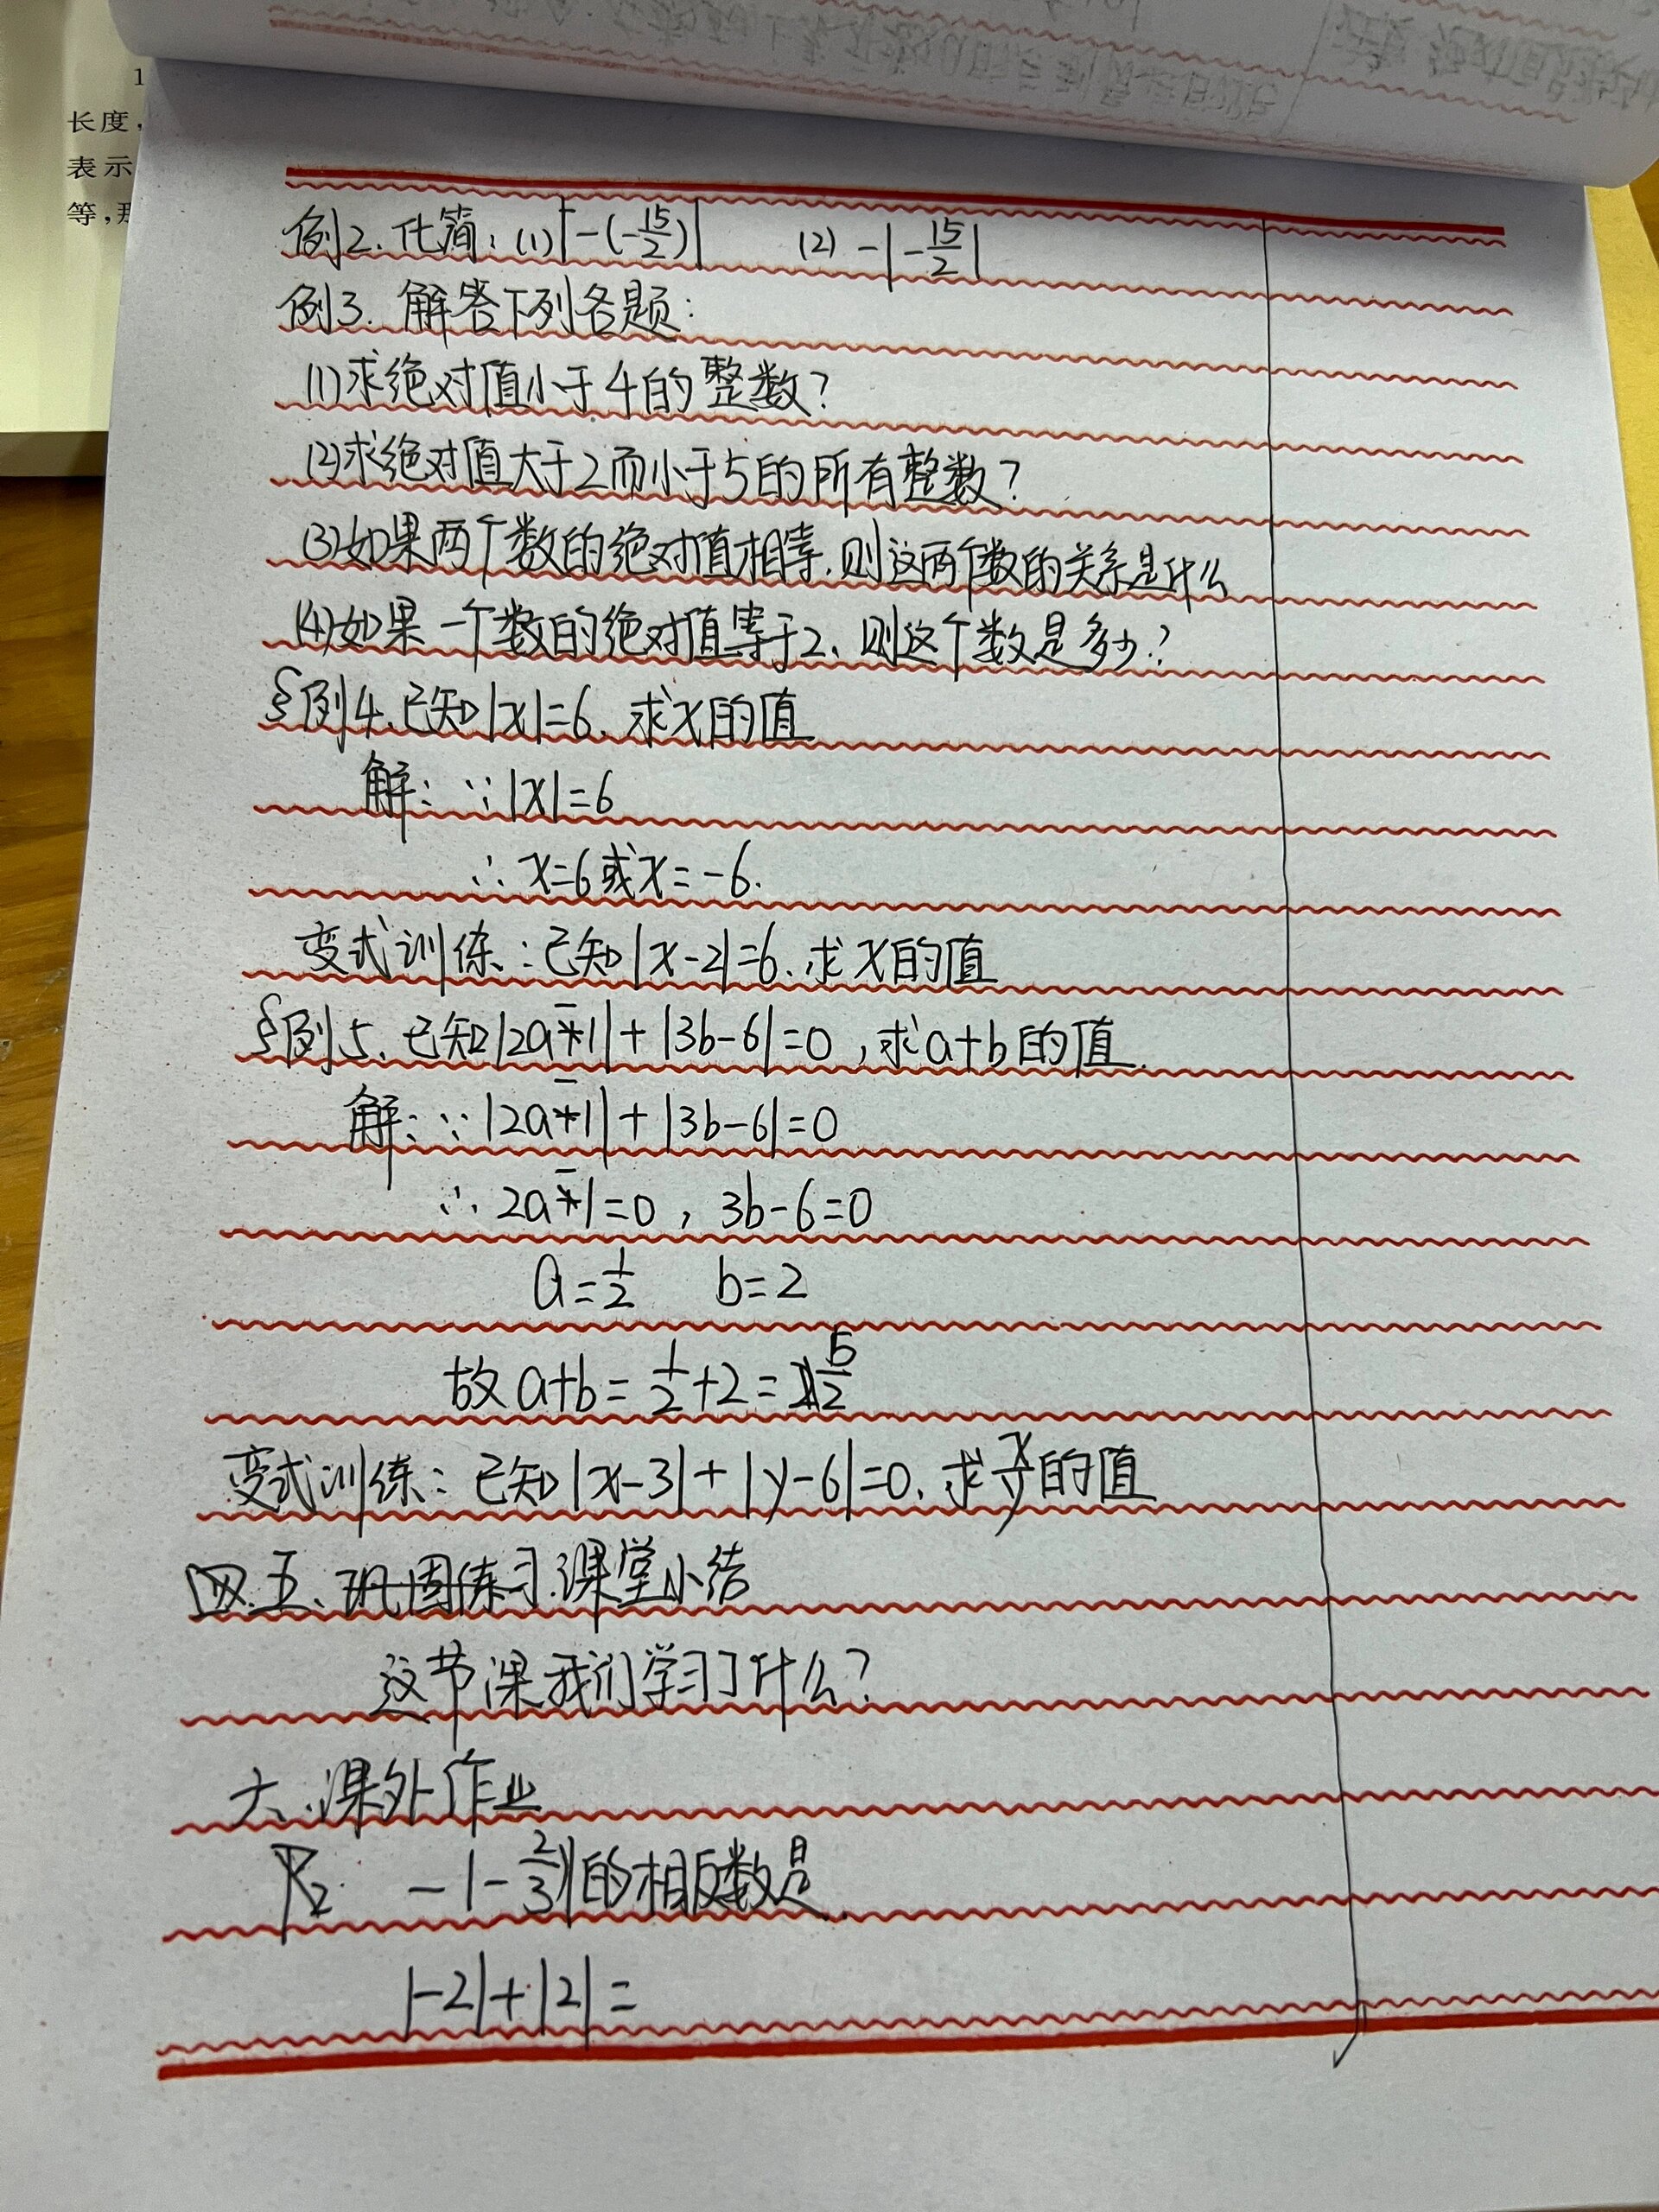 1
长度,
表示
等,
例2.化简:(1)|-(-15/2)| (2) -|-15/2|
例3. 解答下列各题:
(1)求绝对值小于4的整数?
(2)求绝对值大于2而小于5的所有整数?
(3)如果两个数的绝对值相等.则这两个数的关系是什么
(4)如果一个数的绝对值等于2、则这个数是多少?
例4.已知|x|=6.求x的值
解:∵|x|=6
∴x=6或x=-6.
变式训练:已知|x-2|=6.求x的值
例5.已知|2a-1|+|3b-6|=0,求a+b的值.
解:∵|2a-1|+|3b-6|=0
∴2a-1=0,3b-6=0
a=1/2 b=2
故a+b=1/2+2=5/2
变式训练:已知|x-3|+|y-6|=0.求x/y的值
五、课堂小结
这节课我们学习了什么?
六.课外作业
P2. -|-2/3|的相反数是.
|-2|+|2|=